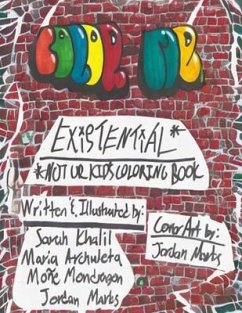 COLOR ME
EXiSTENTiAL*
*NOT UR KIDS COLORING BOOK
Written & Illustrated by:
Sarah Khalil
Maria Archuleta
Moñe Mondragon
Jordan Marbs
Cover Art by:
Jordan Marbs